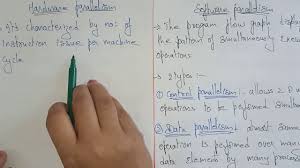 Hardware parallelism
→ It's characterized by no: of
instruction issue per machine
cycle
Software parallelism
→ The program flow graph
the pattern of simultaneously
operations.
→ 2 types:-
① Control parallelism: allows 2 or
operations to be performed
② Data parallelism: almost same
operation is performed over many
data elements by many